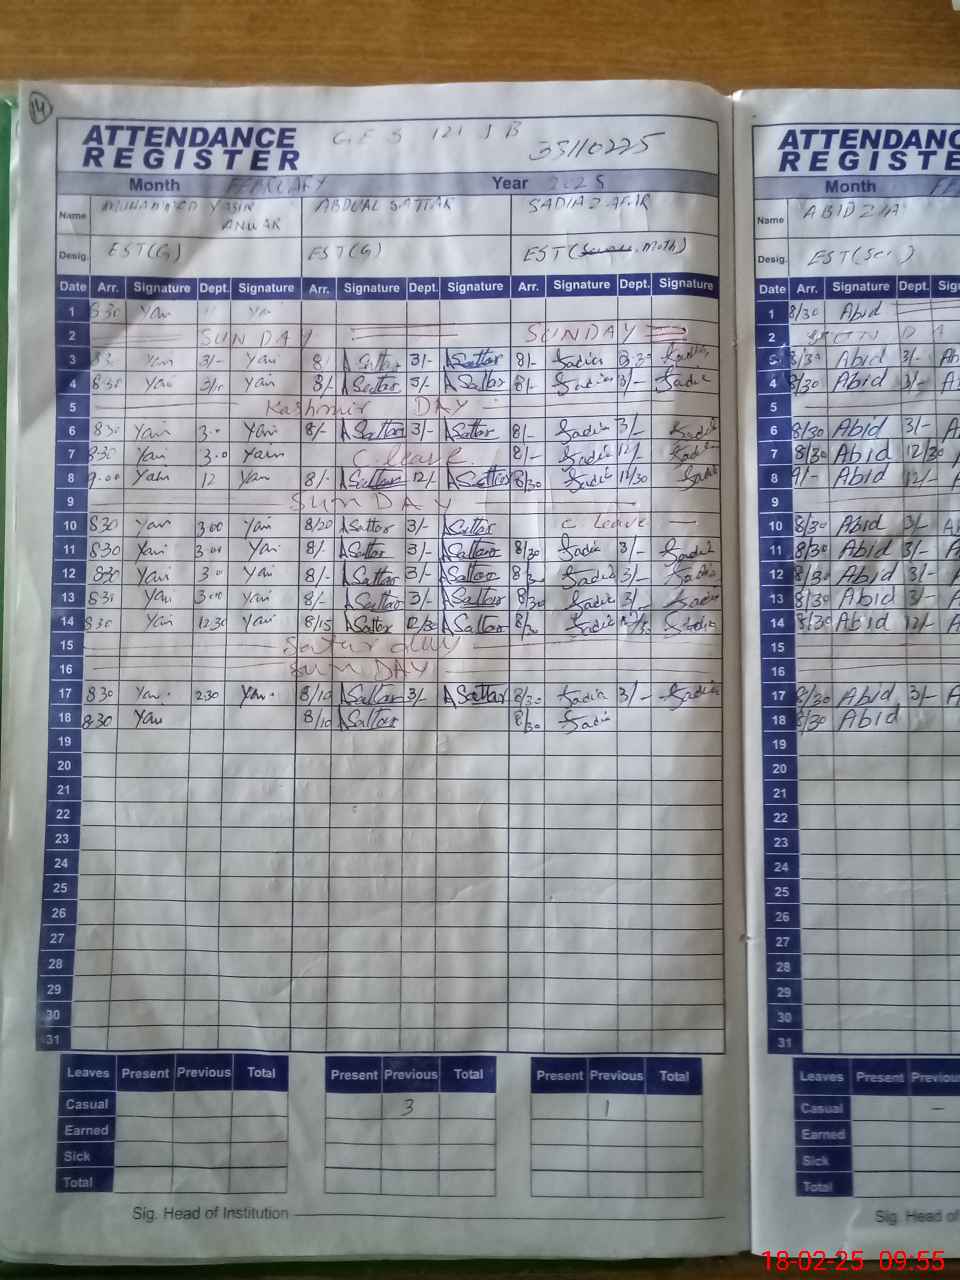 14
ATTENDANCE REGISTER GES 121 JB 33110225
Month FEBRUARY Year 2025
Name MUHAMMED YASIR ANWAR ABDUAL SATTAR SADIA ZAFAR
Desig. EST(G) EST(G) EST( Moth)
Date Arr. Signature Dept. Signature Arr. Signature Dept. Signature Arr. Signature Dept. Signature
1 8 30 Yasir Yasir
2 SUNDAY SUNDAY
3 Yasir 3/- Yasir 8/- ASattar 3/- ASattar 8/- Sadia Sadia
4 8:30 Yasir Yasir 8/- ASattar 3/- ASattar 8/- Sadia 3/- Sadia
5 Kashmir DAY
6 8 30 Yasir 3.0 Yasir 8/- ASattar 3/- ASattar 8/- Sadia 3/- Sadia
7 830 Yasir 3.0 Yasir C. leave 8/- Sadia 12/- Sadia
8 9.00 Yasir 12 Yasir 8/- ASattar 12/- ASattar 8/30 Sadia 11/30 Sadia
9 SUNDAY
10 830 Yasir 300 Yasir 8/20 ASattar 3/- ASattar C. leave
11 830 Yasir 3.00 Yasir 8/- ASattar 3/- ASattar 8/30 Sadia 3/- Sadia
12 830 Yasir 3.0 Yasir 8/- ASattar 3/- ASattar 8/30 Sadia 3/- Sadia
13 830 Yasir 3.00 Yasir 8/- ASattar 3/- ASattar 8/30 Sadia 3/- Sadia
14 830 Yasir 12.30 Yasir 8/15 ASattar 12/30 ASattar 8/30 Sadia 12/30 Sadia
15 Saturday
16 SUNDAY
17 830 Yasir 230 Yasir 8/10 ASattar 3/- ASattar 8/30 Sadia 3/- Sadia
18 830 Yasir 8/10 ASattar 8/30 Sadia
19
20
21
22
23
24
25
26
27
28
29
30
31
Leaves Present Previous Total Present Previous Total Present Previous Total
Casual 3 1
Earned
Sick
Total
Sig. Head of Institution
ATTENDANC
REGISTE
Month FE
Name ABID ZIA
Desig. EST(Sci)
Date Arr. Signature Dept. Sig
1 8/30 Abid
2
3 8/30 Abid 3/- Ab
4 8/30 Abid 3/- A
5
6 8/30 Abid 3/- A
7 8/30 Abid 12/30 A
8 9/- Abid 12/- A
9
10 8/30 Abid 3/- A
11 8/30 Abid 3/- A
12 8/30 Abid 3/- A
13 8/30 Abid 3/- A
14 8/30 Abid 12/- A
15
16
17 8/30 Abid 3/- A
18 8/30 Abid
19
20
21
22
23
24
25
26
27
28
29
30
31
Leaves Present Previous
Casual –
Earned
Sick
Total
Sig. Head of
18-02-25 09:55